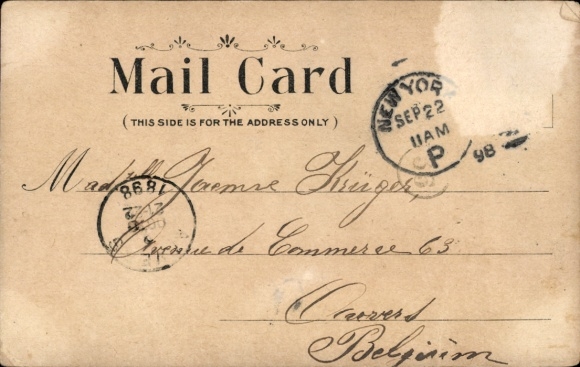 Mail Card
(THIS SIDE IS FOR THE ADDRESS ONLY)
NEW YORK
SEP 22
11AM
P
98
1898
Madlle Krüger,
Avenue de Commerce 63
Anvers
Belgium